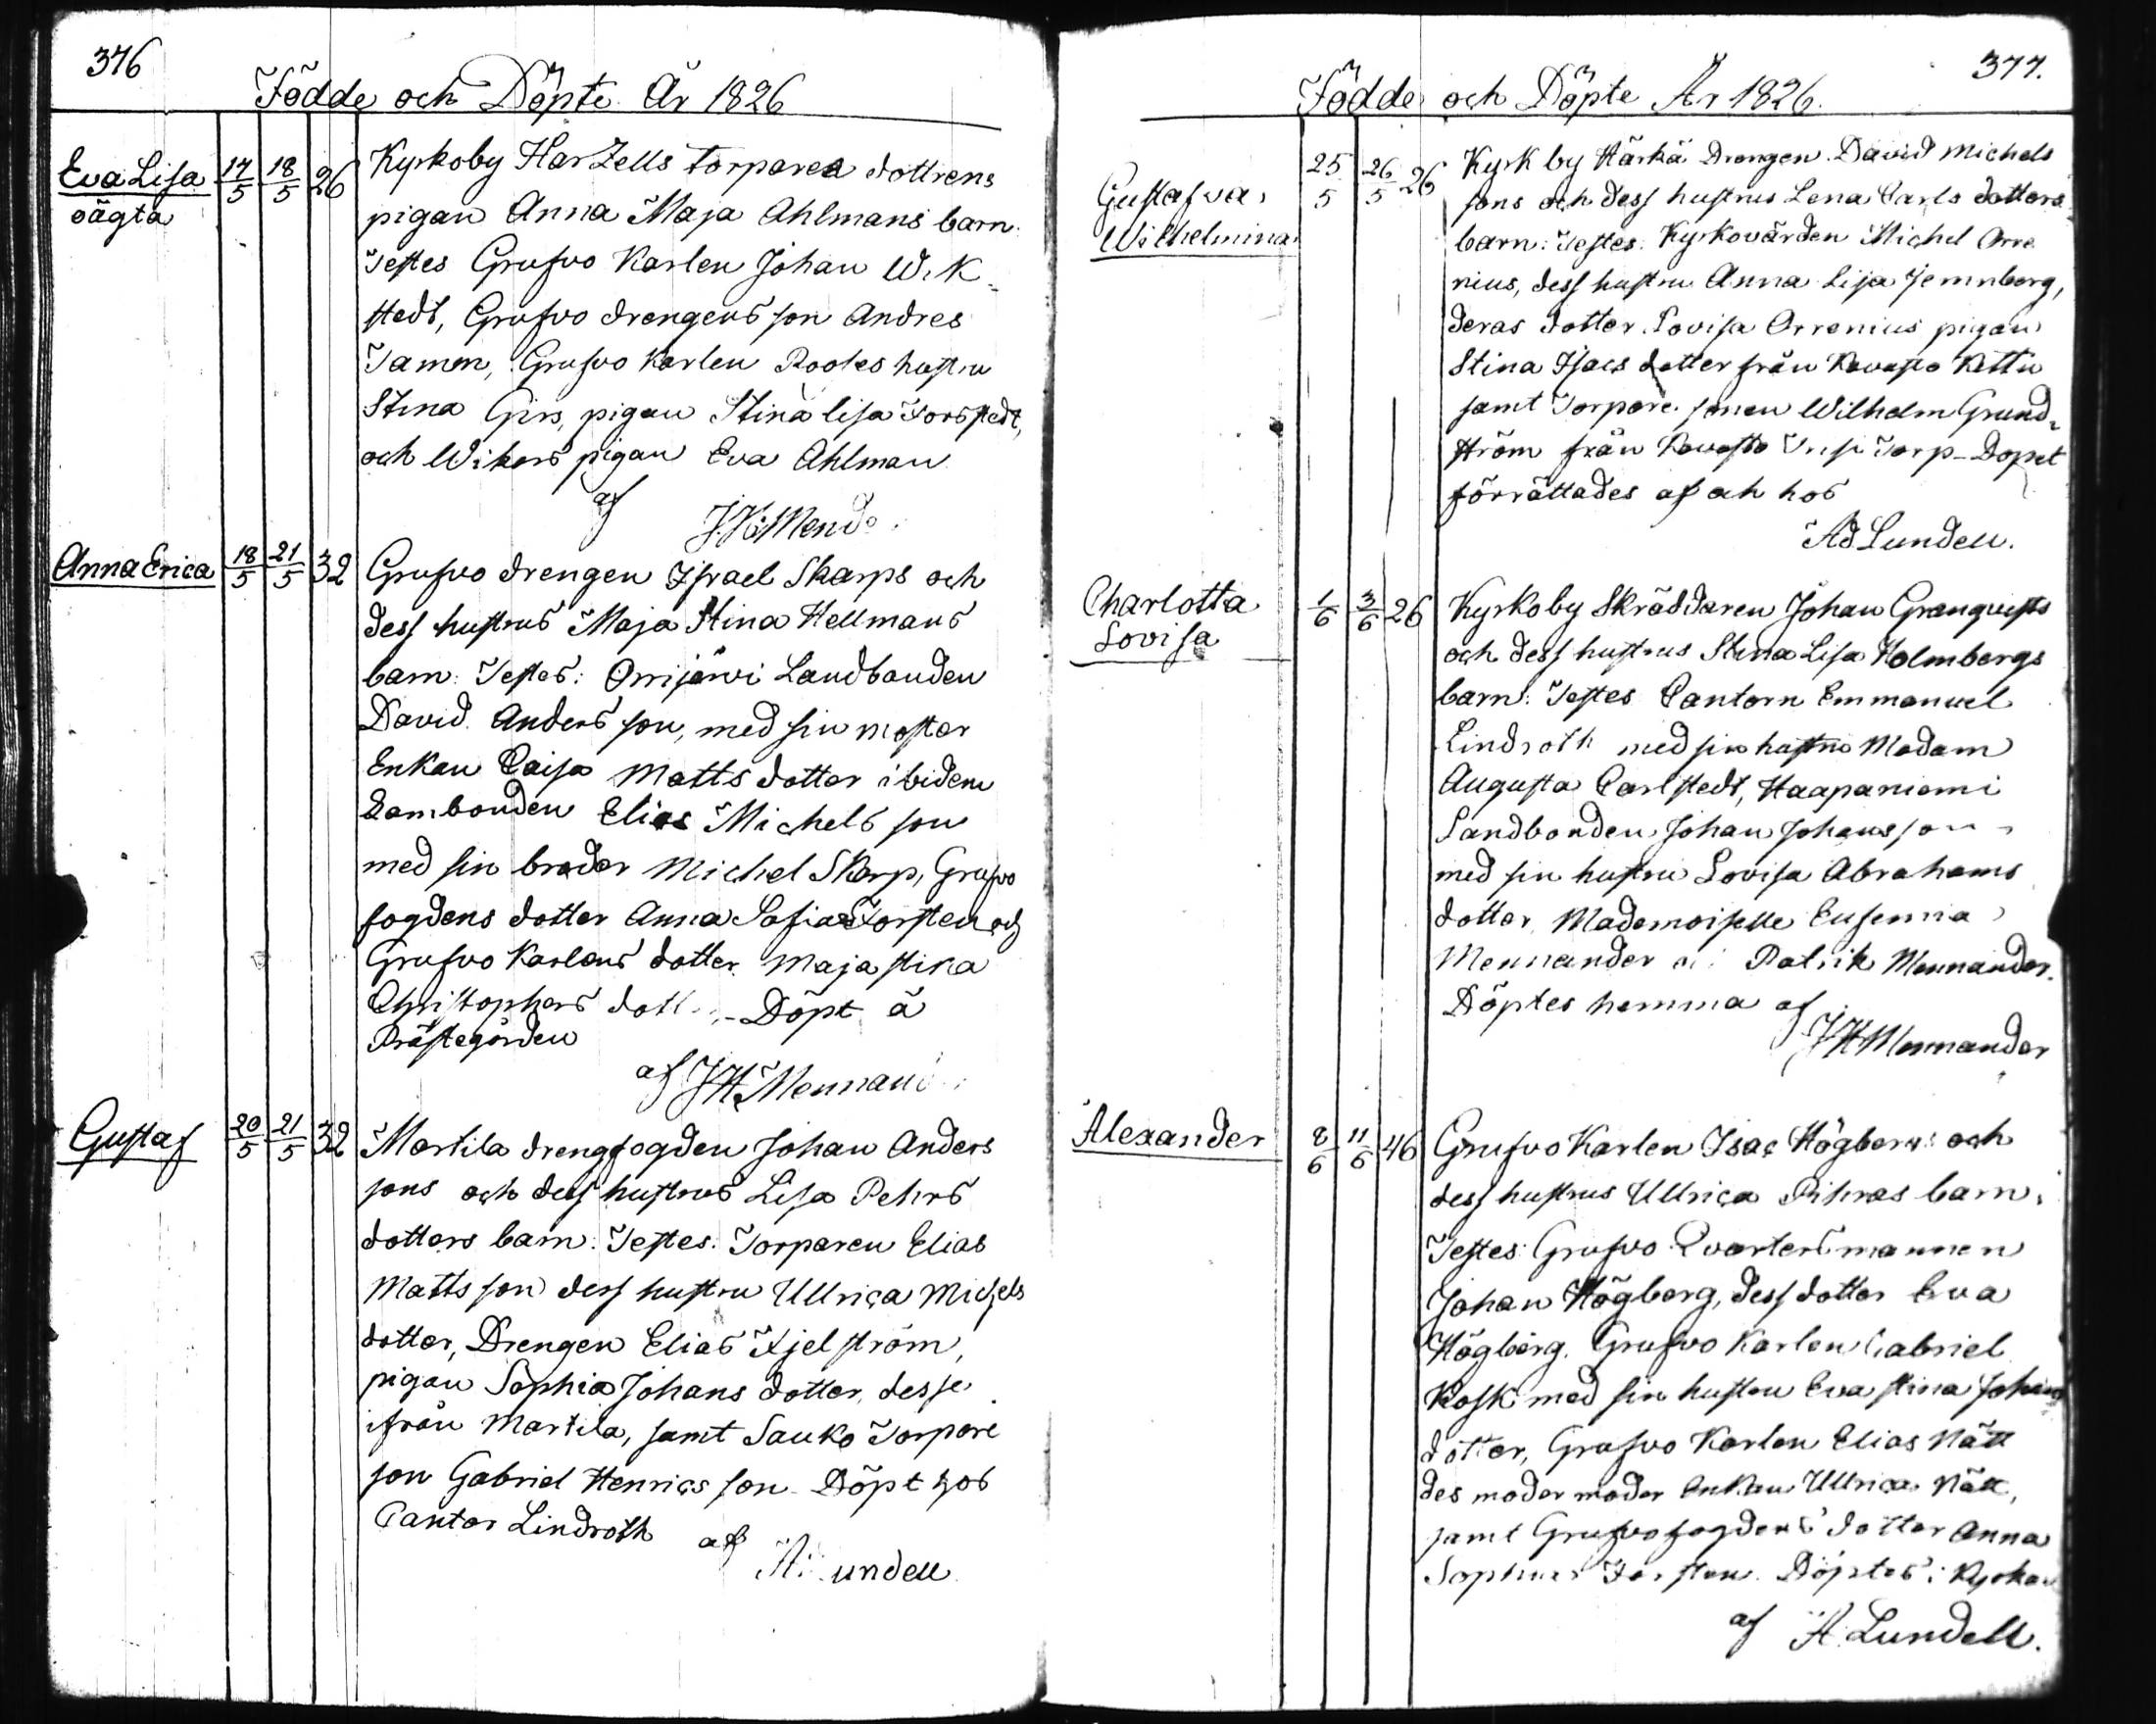 376
Födde och Döpte År 1826
Eva Lisa
oägta
17/5 18/5 26
Kyrkoby Harzells torpares dottrens
pigan Anna Maja Ahlmans barn.
Testes Grufvo Karlen Johan Wik=
stedt, Grufvo drengens son Andres
Tamen, Grufvo Karlen Rootes hustru
Stina Girs, pigan Stina lisa Forsstedt,
och Wikars pigan Eva Ahlman
af
Anna Erica
18/5 21/5 32
Grufvo drengen Israel Skarps och
dess hustrus Maja Stina Hellmans
barn: Testes: Orrijärvi Landbonden
David Anders son, med sin moster
Enkan Caisa Matts dotter ibidem
Lambonden Elias Michels son
med sin broder Michel Skarp, Grufvo
fogdens dotter Anna Sofia Forsten och
Grufvo Karlens dotter Maja stina
Christophers dott Döpt å
Prästegården
af JH Mennan
Gustaf
20/5 21/5 32
Martila drengfogden Johan Anders
sons och dess hustrus Lisa Pehrs
dotters barn. Testes: Torparen Elias
Matts son dess hustru Ullrica Michels
dotter, Drengen Elias Kjelström,
pigan Sophia Johans dotter, desse
ifrån Martila, samt Sauko Torpare
son Gabriel Henrics son. Döpt hos
Cantor Lindroth af
A undell
377.
Födde och Döpte År 1826.
Gustafva
Wilhelmina
25/5 26/5 26
Kyrk by Härkä Drengen David Michels
sons och dess hustrus Lena Carls dotters
barn: Testes: Kyrkovärden Michel Orre
nius, dess hustru Anna Lisa Jernberg,
deras dotter Lovisa Orrenius pigan
Stina Isacs dotter från Kovasto Kettu
samt Torpare sonen Wilhelm Grund=
ström från Kovasto Torp – Dopet
förrättades af och hos
Ad Lundell.
Charlotta
Lovisa
1/6 3/6 26
Kyrkoby Skräddaren Johan Granqvists
och dess hustrus Stina Lisa Holmbergs
barn: Testes Cantorn Emmanuel
Lindroth med sin hustru Madam
Augusta Carlstedt, Haapaniemi
Landbonden Johan Johansson
med sin hustru Lovisa Abrahams
dotter, Mademoiselle Eufemia
Mennander Patrik Mennander.
Döptes hemma af
JH Mennander
Alexander
8/6 11/6 46
Grufvo Karlen Isac Högbergs och
dess hustrus Ullrica Pihras barn.
Testes: Grufvo Qvartersmannen
Johan Högberg, dess dotter Eva
Högberg, Grufvo Karlen Gabriel
Kosk med sin hustru Eva stina Johans
dotter, Grufvo Karlen Elias Nätt
des moder moder Enkan Ullrica Nätt,
samt Grufvofogdens dotter Anna
Sophia Forsten. Döptes i Kyrkan
af A. Lundell.